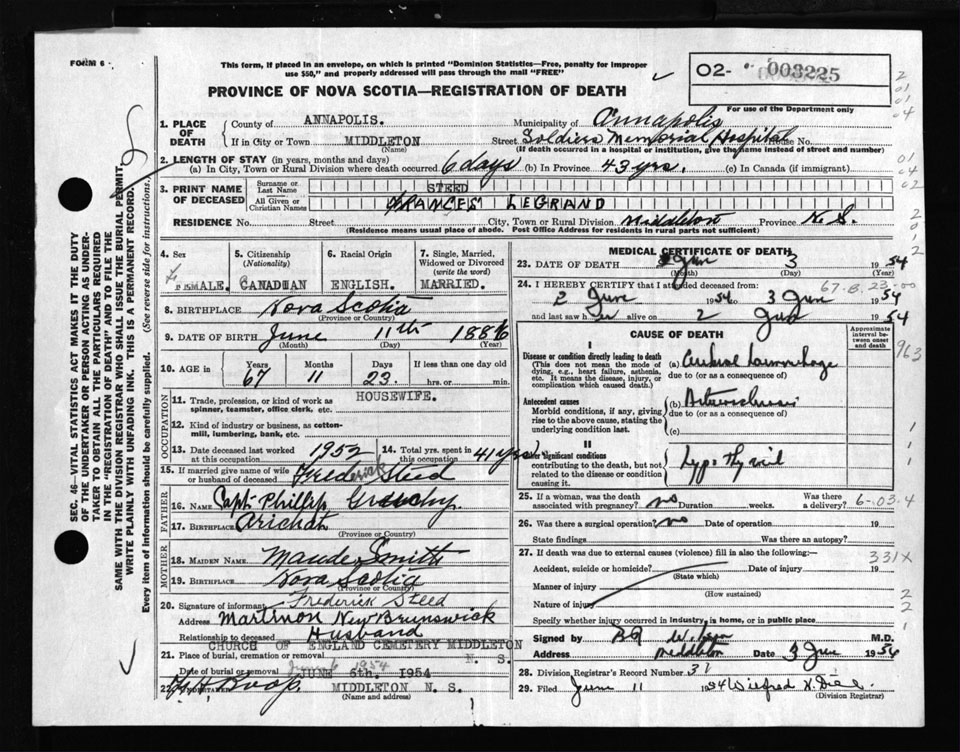 FORM 6
This form, if placed in an envelope, on which is printed "Dominion Statistics—Free, penalty for improper
use $50," and properly addressed will pass through the mail "FREE"
02- 003225
For use of the Department only
PROVINCE OF NOVA SCOTIA—REGISTRATION OF DEATH
1. PLACE OF DEATH
County of ANNAPOLIS. Municipality of Annapolis
If in City or Town MIDDLETON (Name) Street Soldiers Memorial Hospital House No.
(If death occurred in a hospital or institution, give the name instead of street and number)
2. LENGTH OF STAY (in years, months and days)
(a) In City, Town or Rural Division where death occurred 6 days (b) In Province 43 yrs. (c) In Canada (if immigrant)
3. PRINT NAME OF DECEASED
Surname or Last Name STEED
All Given or Christian Names FRANCES LEGRAND
RESIDENCE No. Street City, Town or Rural Division Middleton Province N. S.
(Residence means usual place of abode. Post Office Address for residents in rural parts not sufficient)
4. Sex FEMALE.
5. Citizenship (Nationality) CANADIAN
6. Racial Origin ENGLISH.
7. Single, Married, Widowed or Divorced (write the word) MARRIED.
8. BIRTHPLACE Nova Scotia
(Province or Country)
9. DATE OF BIRTH June 11th 1886
(Month) (Day) (Year)
10. AGE in Years 67 Months 11 Days 23. If less than one day old hrs. or min.
OCCUPATION
11. Trade, profession, or kind of work as spinner, teamster, office clerk, etc. HOUSEWIFE.
12. Kind of industry or business, as cotton-mill, lumbering, bank, etc.
13. Date deceased last worked at this occupation 1952
14. Total yrs. spent in this occupation 41 yrs
15. If married give name of wife or husband of deceased Frederick Steed
FATHER
16. NAME Capt Phillip
17. BIRTHPLACE Arichat
(Province or Country)
MOTHER
18. MAIDEN NAME Maude Smith
19. BIRTHPLACE Nova Scotia
(Province or Country)
20. Signature of informant Frederick Steed
Address Martinon New Brunswick
Relationship to deceased Husband
CHURCH OF ENGLAND CEMETERY MIDDLETON
21. Place of burial, cremation or removal N. S.
June 6 1954
Date of burial or removal JUNE 5th. 1954
22. UNDERTAKER MIDDLETON N. S.
(Name and Address)
MEDICAL CERTIFICATE OF DEATH
23. DATE OF DEATH June 3 1954
(Month) (Day) (Year)
24. I HEREBY CERTIFY that I attended deceased from: 67-8.23-00
2 June 1954 to 3 June 1954
and last saw her alive on 2 June 1954
CAUSE OF DEATH
Approximate interval between onset and death
963
I
Disease or condition directly leading to death
(This does not mean the mode of dying, e.g., heart failure, asthenia, etc. It means the disease, injury, or complication which caused death.)
(a) Cerebral haemorrhage
due to (or as a consequence of)
Antecedent causes
Morbid conditions, if any, giving rise to the above cause, stating the underlying condition last.
(b) Arteriosclerosis
due to (or as a consequence of)
(c)
II
Other significant conditions
contributing to the death, but not related to the disease or condition causing it.
Hypothyroid
25. If a woman, was the death associated with pregnancy? no Duration weeks. Was there a delivery? 6-03.4
26. Was there a surgical operation? no Date of operation
State findings Was there an autopsy?
27. If death was due to external causes (violence) fill in also the following:
331X
Accident, suicide or homicide? (State which) Date of injury 19
Manner of injury (How sustained)
Nature of injury
Specify whether injury occurred in industry, in home, or in public place
Signed by M.D.
Address Middleton Date 3 June 1954
28. Division Registrar's Record Number 31
29. Filed June 11 1954 Wilfred
(Division Registrar)
SEC. 46—VITAL STATISTICS ACT MAKES IT THE DUTY
OF THE UNDERTAKER OR PERSON ACTING AS UNDER-
TAKER TO OBTAIN ALL THE PARTICULARS REQUIRED
IN THE "REGISTRATION OF DEATH" AND TO FILE THE
SAME WITH THE DIVISION REGISTRAR WHO SHALL ISSUE THE BURIAL PERMIT.
WRITE PLAINLY WITH UNFADING INK. THIS IS A PERMANENT RECORD.
Every item of information should be carefully supplied. (See reverse side for instructions.)
2
01
04
01
04
02
2
0
1
2
1
1
1
2
2